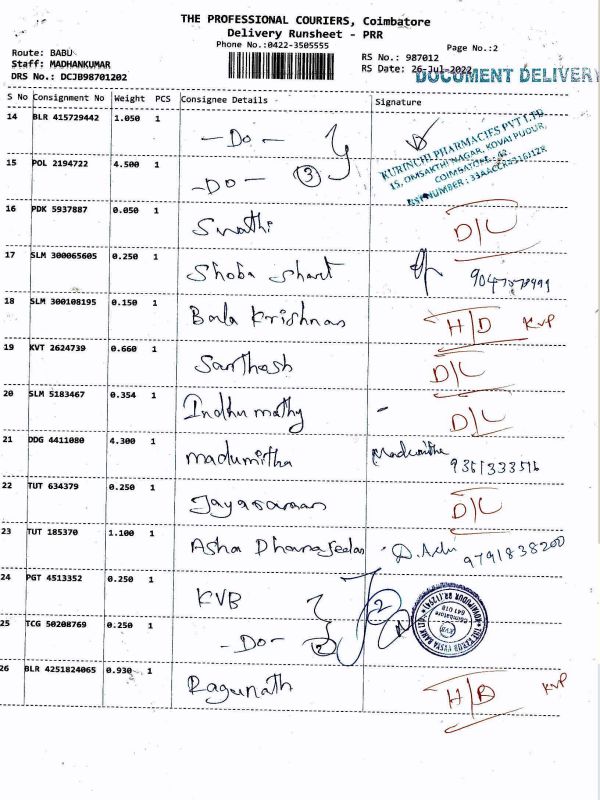 THE PROFESSIONAL COURIERS, Coimbatore
Delivery Runsheet - PRR
Phone No.:0422-3505555
Page No.:2
Route: BABU
Staff: MADHANKUMAR
DRS No.: DCJB98701202
RS No.: 987012
RS Date: 26-Jul-2022
DOCUMENT DELIVERY
S No Consignment No Weight PCS Consignee Details Signature
14 BLR 415729442 1.050 1 - Do -
KURINCHI PHARMACIES PVT LTD
15, OMSAKTHI NAGAR, KOVAIPUDUR,
COIMBATORE - 42.
15 POL 2194722 4.500 1 - DO - 3
16 PDK 5937887 0.050 1 Swathi D/L
17 SLM 300065605 0.250 1 Shoba
18 SLM 300108195 0.150 1 Bala Krishnan H/D KVP
19 KVT 2624739 0.660 1 Santhosh D/L
20 SLM 5183467 0.354 1 Indhu mathy - D/L
21 DDG 4411080 4.300 1 madumitha Madumitha
22 TUT 634379 0.250 1 Jayaraman D/L
23 TUT 185370 1.100 1 Asha 9791838200
24 PGT 4513352 0.250 1 KVB 2
25 TCG 50208769 0.250 1 - Do - 2
THE KARUR VYSYA BANK LTD
KVB
Coimbatore
641 010
26 BLR 4251824065 0.930 1 Ragunath H/D KVP